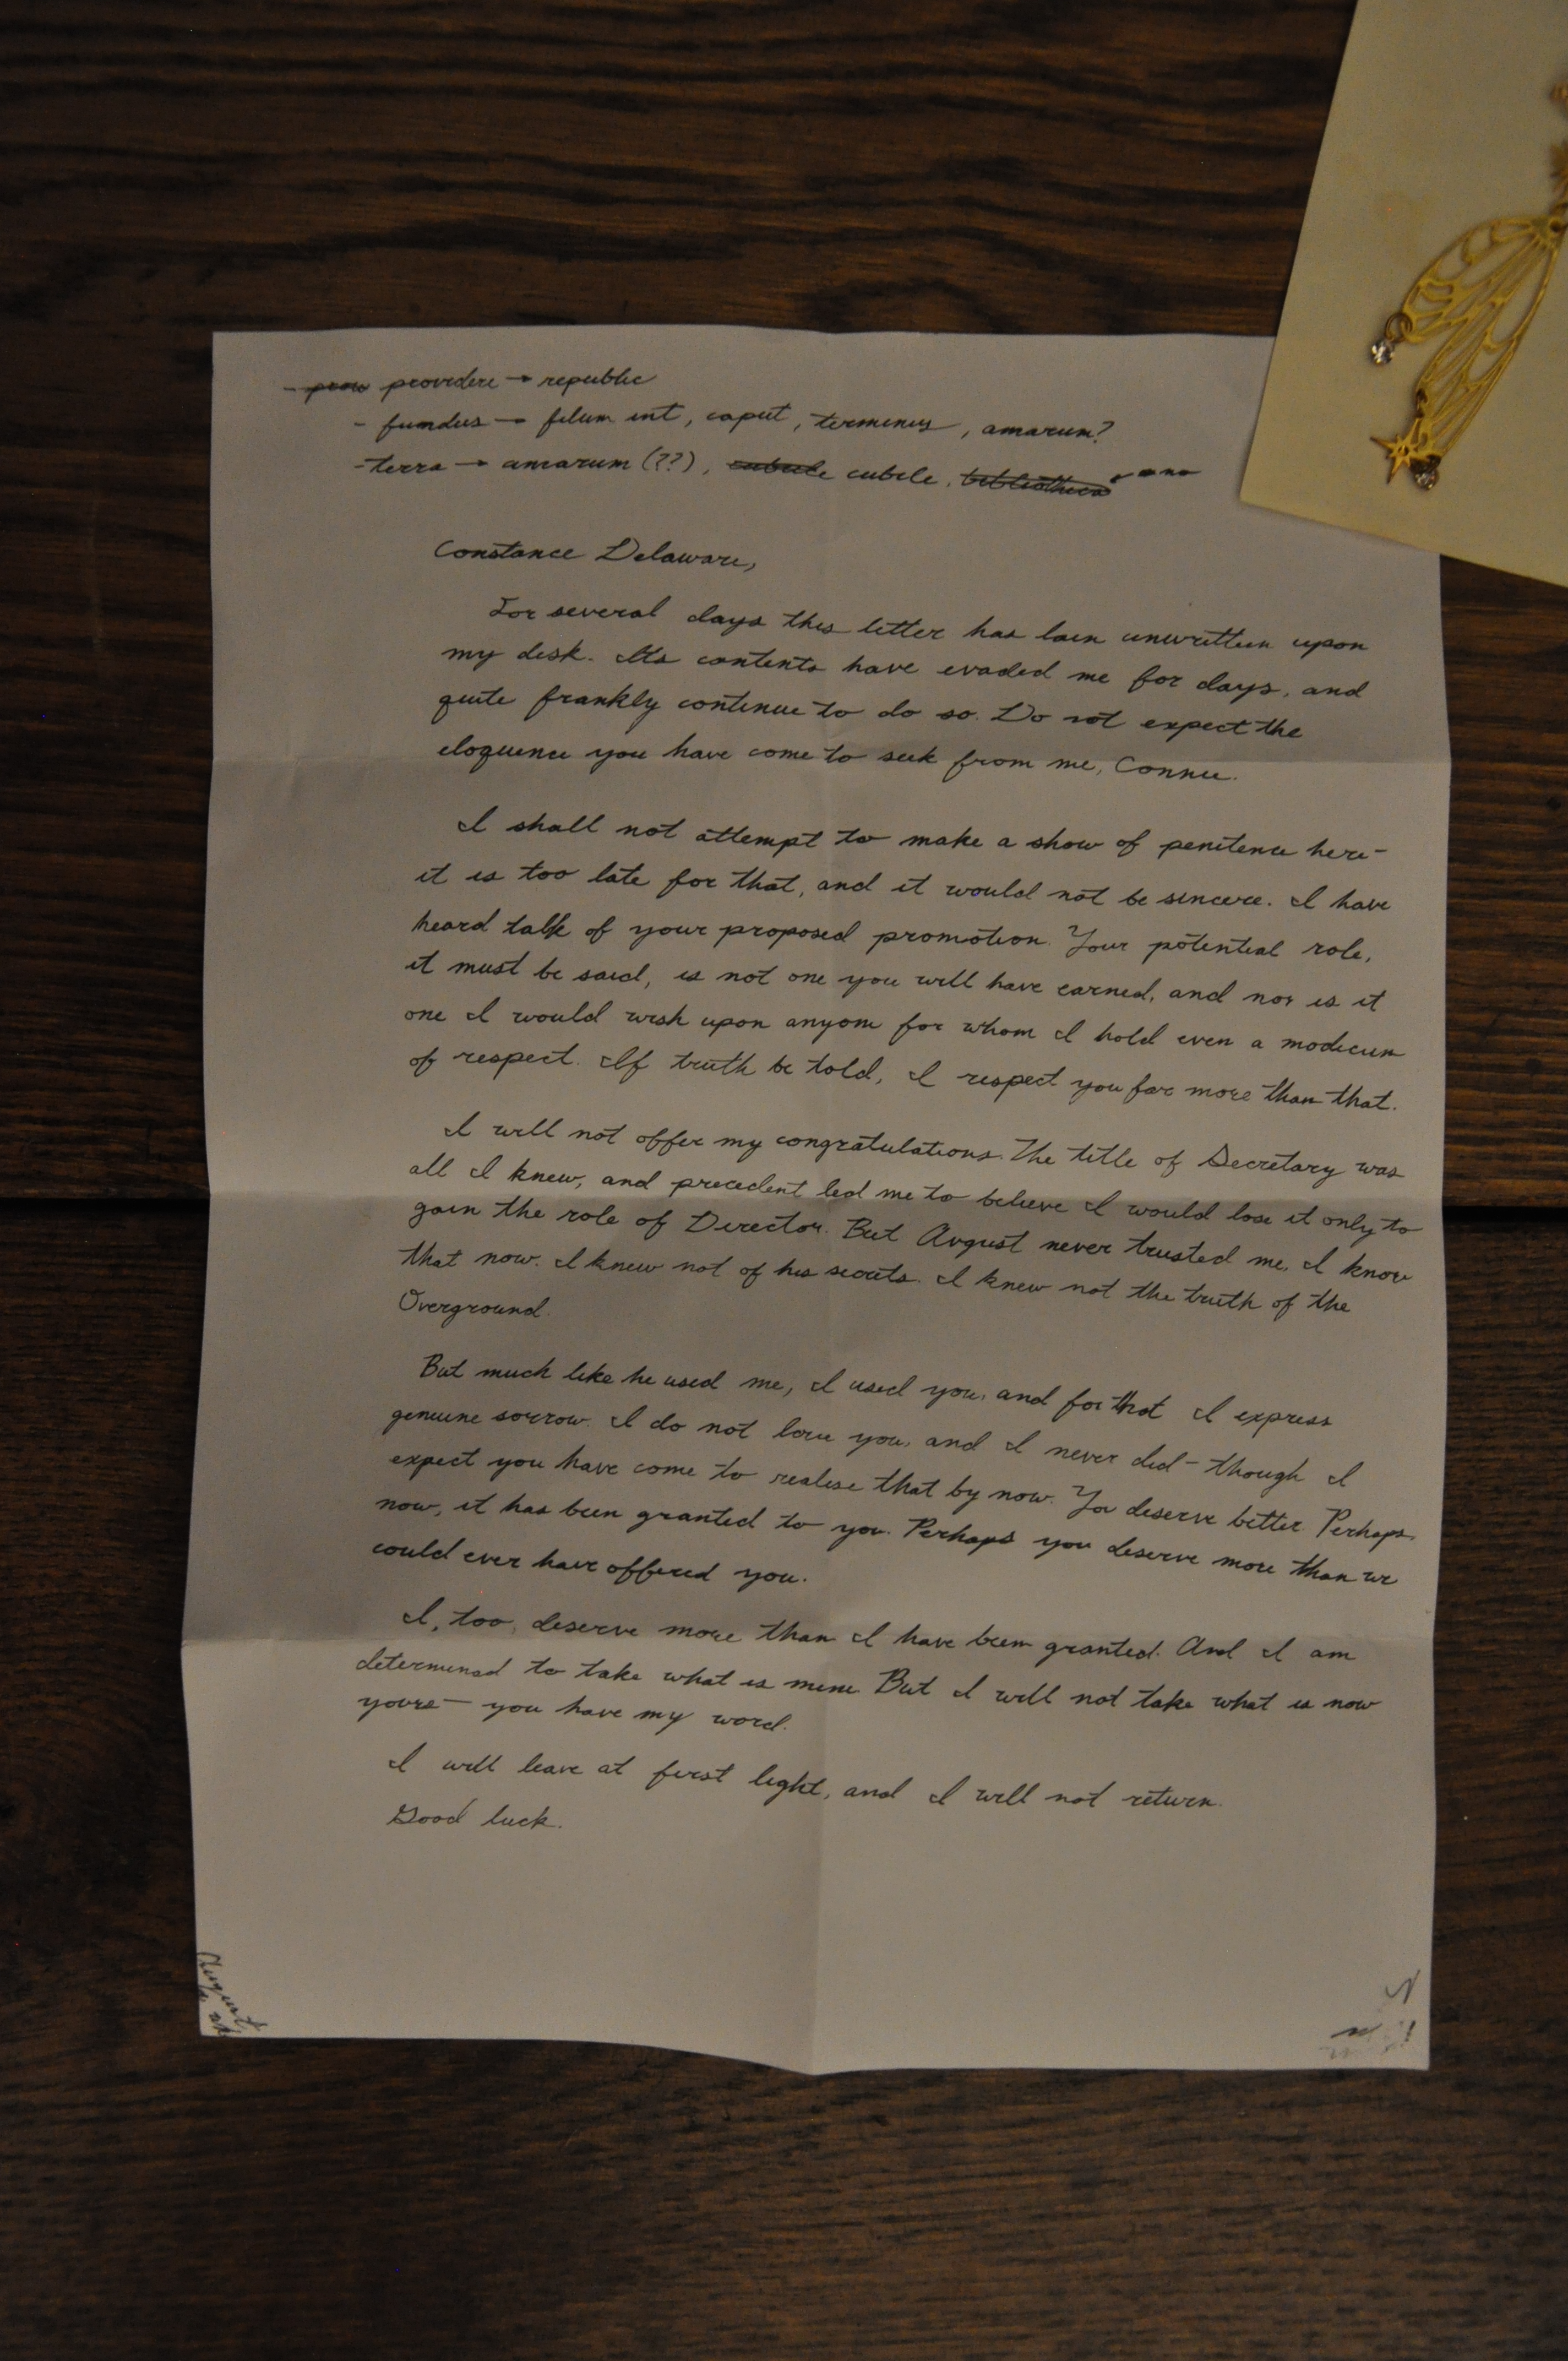 - ~~prov~~ providere → republic
- fundus → filum int, caput, terminus, amarum?
- terra → amarum (??), ~~cubule~~ cubile, ~~bibliotheca~~ ← no
Constance Delaware,
For several days this letter has lain unwritten upon
my desk. Its contents have evaded me for days, and
quite frankly continue to do so. Do not expect the
eloquence you have come to seek from me, Connie.
I shall not attempt to make a show of penitence here-
it is too late for that, and it would not be sincere. I have
heard talk of your proposed promotion. Your potential role,
it must be said, is not one you will have earned, and nor is it
one I would wish upon anyone for whom I hold even a modicum
of respect. If truth be told, I respect you far more than that.
I will not offer my congratulations. The title of Secretary was
all I knew, and precedent led me to believe I would lose it only to
gain the role of Director. But August never trusted me, I know
that now. I knew not of his secrets. I knew not the truth of the
Overground.
But much like he used me, I used you, and for that I express
genuine sorrow. I do not love you, and I never did - though I
expect you have come to realise that by now. You deserve better. Perhaps
now, it has been granted to you. Perhaps you deserve more than we
could ever have offered you.
I, too, deserve more than I have been granted. And I am
determined to take what is mine. But I will not take what is now
yours - you have my word.
I will leave at first light, and I will not return.
Good luck.
August